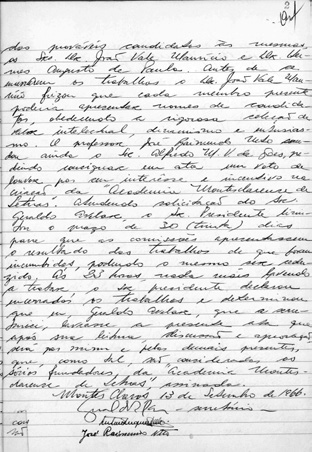 2
dos prováveis candidatos às mesmas,
os Srs. Drs. João Vale Maurício e
Augusto de Paula. Antes de se
os trabalhos o Dr. João Vale Mau-
rício frizou que cada membro presente
poderia apresentar nomes de candida-
tos, obedecendo a rigorosa seleção de
valor intelectual, dinamismo e entusias-
mo. O professor José Raimundo Neto
ainda o Sr. Alfredo M. V. de Goes, pe-
dindo consignar em ata um voto de
louvor, por seu interêsse e incentivo na
criação da "Academia Montesclarense de
Letras". Atendendo solicitação do Sr.
Geraldo o Sr. Presidente
o prazo de 30 (trinta) dias
para que as comissões apresentassem
o resultado dos trabalhos de que foram
incumbidos, podendo o mesmo ser redu-
zido. Às 23 horas nada mais havendo
a tratar o Sr. presidente declarou
encerrados os trabalhos e determinou
que eu, Geraldo que a
lavrasse a presente ata que
após sua leitura, discussão e aprovação
será por mim e pelos demais presentes,
que, como tal são considerados os
sócios fundadores, da "Academia Montes-
clarense de Letras" assinada.
Montes Claros, 13 de Setembro de 1966.
secretário
José Raimundo Neto